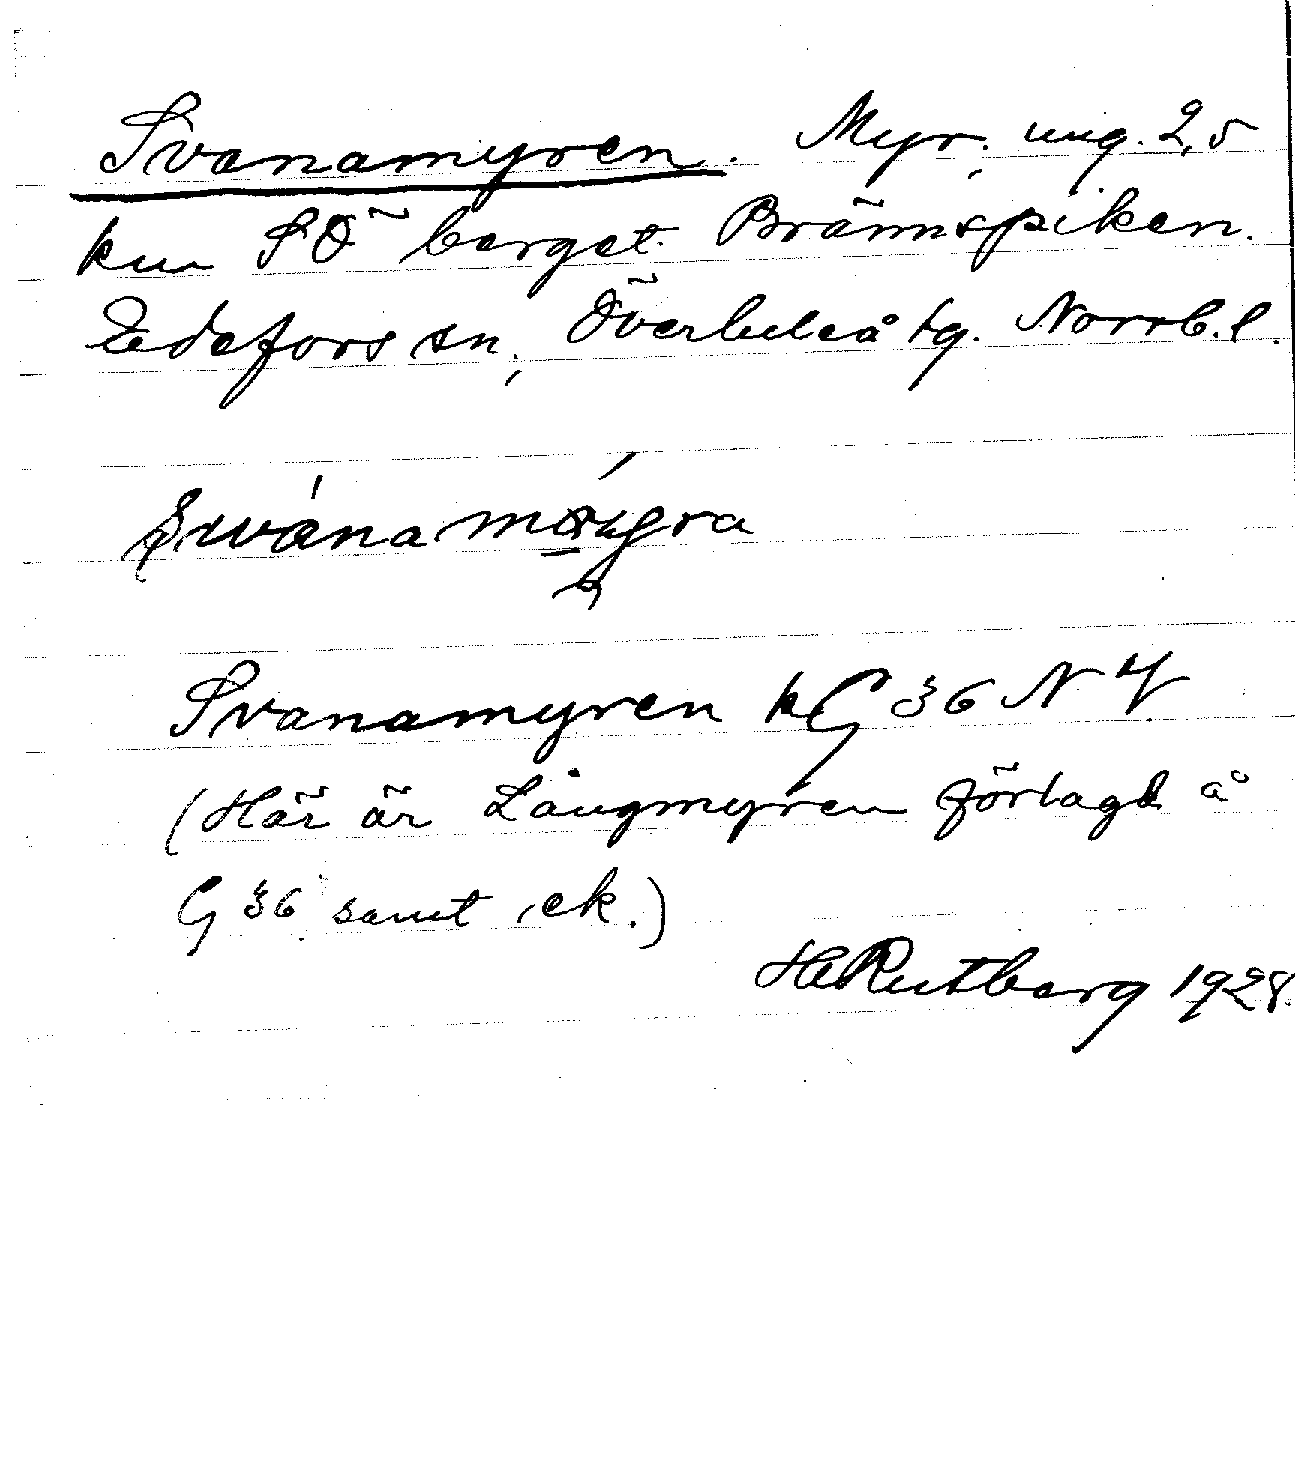 Svanamyren. Myr, ung. 2,5
km SÖ berget Brännspiken.
Edefors sn, Överluleå tg. Norrb. l.
Svanamyren kG 36 NV
(Här är Långmyren förlagd å
G 36 samt ek.)
H Rutberg 1928.